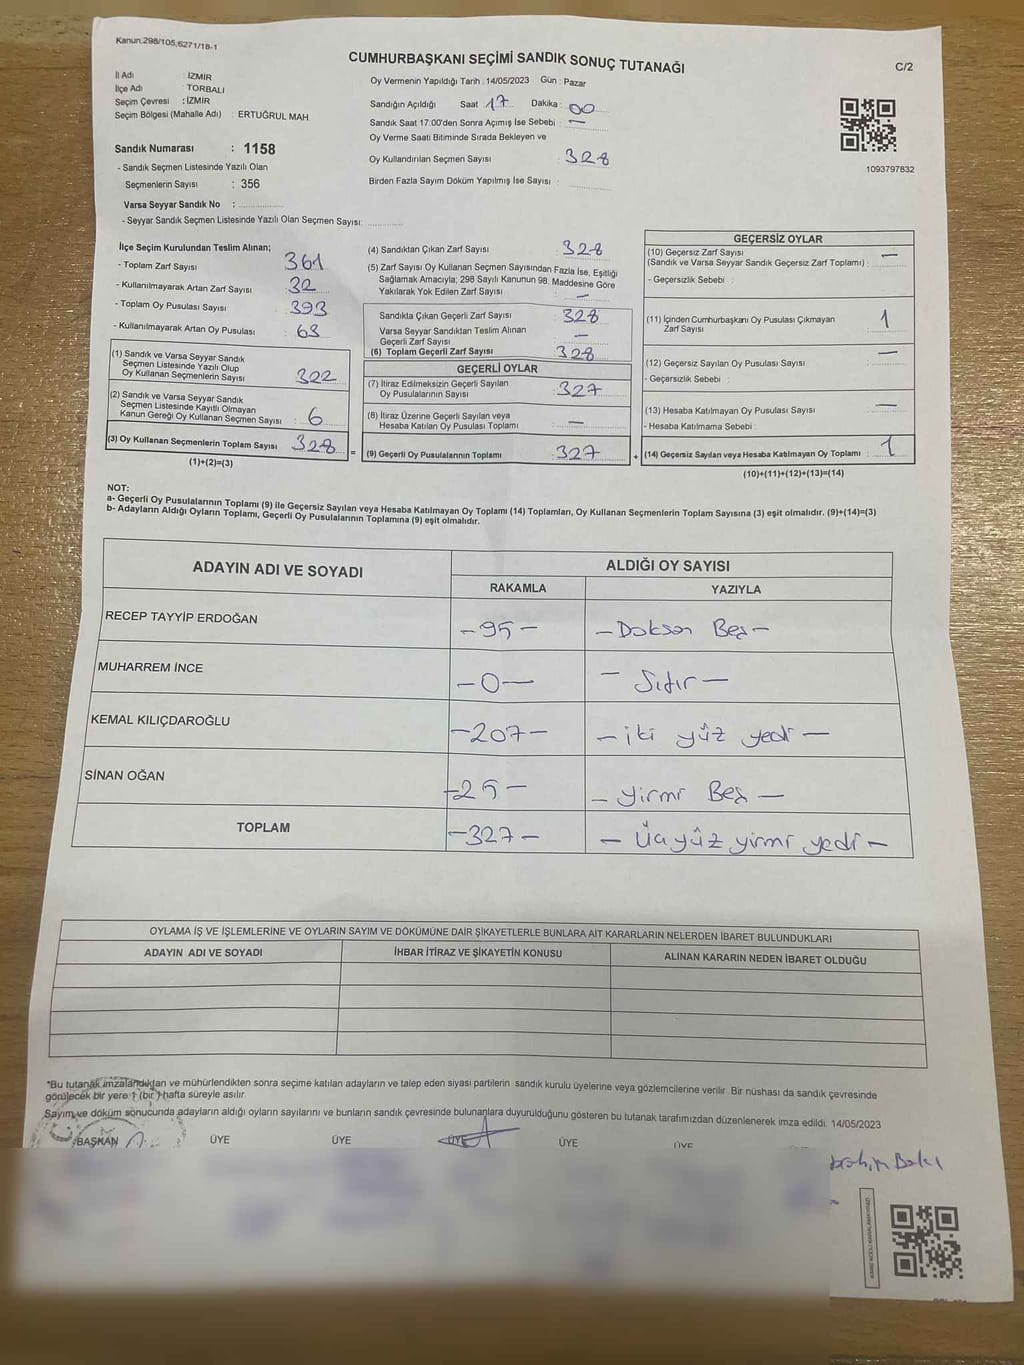 Kanun.298/105,6271/18-1
CUMHURBAŞKANI SEÇİMİ SANDIK SONUÇ TUTANAĞI
C/2
İl Adı : İZMİR
İlçe Adı TORBALI
Seçim Çevresi : İZMİR
Seçim Bölgesi (Mahalle Adı) : ERTUĞRUL MAH.
Sandık Numarası : 1158
- Sandık Seçmen Listesinde Yazılı Olan
Seçmenlerin Sayısı : 356
Varsa Seyyar Sandık No :
- Seyyar Sandık Seçmen Listesinde Yazılı Olan Seçmen Sayısı:
Oy Vermenin Yapıldığı Tarih : 14/05/2023 Gün : Pazar
Sandığın Açıldığı Saat 17 Dakika : 00
Sandık Saat 17:00'den Sonra Açımış İse Sebebi : —
Oy Verme Saati Bitiminde Sırada Bekleyen ve
Oy Kullandırılan Seçmen Sayısı : 328
Birden Fazla Sayım Döküm Yapılmış İse Sayısı :
1093797832
İlçe Seçim Kurulundan Teslim Alınan;
- Toplam Zarf Sayısı : 361
- Kullanılmayarak Artan Zarf Sayısı : 32
- Toplam Oy Pusulası Sayısı : 393
- Kullanılmayarak Artan Oy Pusulası : 63
(1) Sandık ve Varsa Seyyar Sandık
Seçmen Listesinde Yazılı Olup
Oy Kullanan Seçmenlerin Sayısı : 322
(2) Sandık ve Varsa Seyyar Sandık
Seçmen Listesinde Kayıtlı Olmayan
Kanun Gereği Oy Kullanan Seçmen Sayısı : 6
(3) Oy Kullanan Seçmenlerin Toplam Sayısı : 328
(1)+(2)=(3)
(4) Sandıktan Çıkan Zarf Sayısı : 328
(5) Zarf Sayısı Oy Kullanan Seçmen Sayısından Fazla İse, Eşitliği
Sağlamak Amacıyla; 298 Sayılı Kanunun 98. Maddesine Göre
Yakılarak Yok Edilen Zarf Sayısı : —
Sandıkla Çıkan Geçerli Zarf Sayısı : 328
Varsa Seyyar Sandıktan Teslim Alınan
Geçerli Zarf Sayısı : —
(6) Toplam Geçerli Zarf Sayısı : 328
GEÇERLİ OYLAR
(7) İtiraz Edilmeksizin Geçerli Sayılan
Oy Pusulalarının Sayısı : 327
(8) İtiraz Üzerine Geçerli Sayılan veya
Hesaba Katılan Oy Pusulası Toplamı : —
= (9) Geçerli Oy Pusulalarının Toplamı : 327
GEÇERSİZ OYLAR
(10) Geçersiz Zarf Sayısı
(Sandık ve Varsa Seyyar Sandık Geçersiz Zarf Toplamı) : —
- Geçersizlik Sebebi :
(11) İçinden Cumhurbaşkanı Oy Pusulası Çıkmayan
Zarf Sayısı : 1
(12) Geçersiz Sayılan Oy Pusulası Sayısı : —
- Geçersizlik Sebebi :
(13) Hesaba Katılmayan Oy Pusulası Sayısı : —
- Hesaba Katılmama Sebebi :
+ (14) Geçersiz Sayılan veya Hesaba Katılmayan Oy Toplamı : 1
(10)+(11)+(12)+(13)=(14)
NOT:
a- Geçerli Oy Pusulalarının Toplamı (9) ile Geçersiz Sayılan veya Hesaba Katılmayan Oy Toplamı (14) Toplamları, Oy Kullanan Seçmenlerin Toplam Sayısına (3) eşit olmalıdır. (9)+(14)=(3)
b- Adayların Aldığı Oyların Toplamı, Geçerli Oy Pusulalarının Toplamına (9) eşit olmalıdır.
ADAYIN ADI VE SOYADI
ALDIĞI OY SAYISI
RAKAMLA YAZIYLA
RECEP TAYYİP ERDOĞAN - 95 - - Doksan Beş -
MUHARREM İNCE - 0 - - Sıfır -
KEMAL KILIÇDAROĞLU - 207 - - iki yüz yedi -
SİNAN OĞAN - 25 - - yirmi Beş -
TOPLAM - 327 - - Üçyüz yirmi yedi -
OYLAMA İŞ VE İŞLEMLERİNE VE OYLARIN SAYIM VE DÖKÜMÜNE DAİR ŞİKAYETLERLE BUNLARA AİT KARARLARIN NELERDEN İBARET BULUNDUKLARI
ADAYIN ADI VE SOYADI İHBAR İTİRAZ VE ŞİKAYETİN KONUSU ALINAN KARARIN NEDEN İBARET OLDUĞU
*Bu tutanak imzalandıktan ve mühürlendikten sonra seçime katılan adayların ve talep eden siyasi partilerin sandık kurulu üyelerine veya gözlemcilerine verilir. Bir nüshası da sandık çevresinde
görülecek bir yere 1 (bir ) hafta süreyle asılır.
Sayım ve döküm sonucunda adayların aldığı oyların sayılarını ve bunların sandık çevresinde bulunanlara duyurulduğunu gösteren bu tutanak tarafımızdan düzenlenerek imza edildi. 14/05/2023
BAŞKAN ÜYE ÜYE ÜYE ÜYE ÜYE